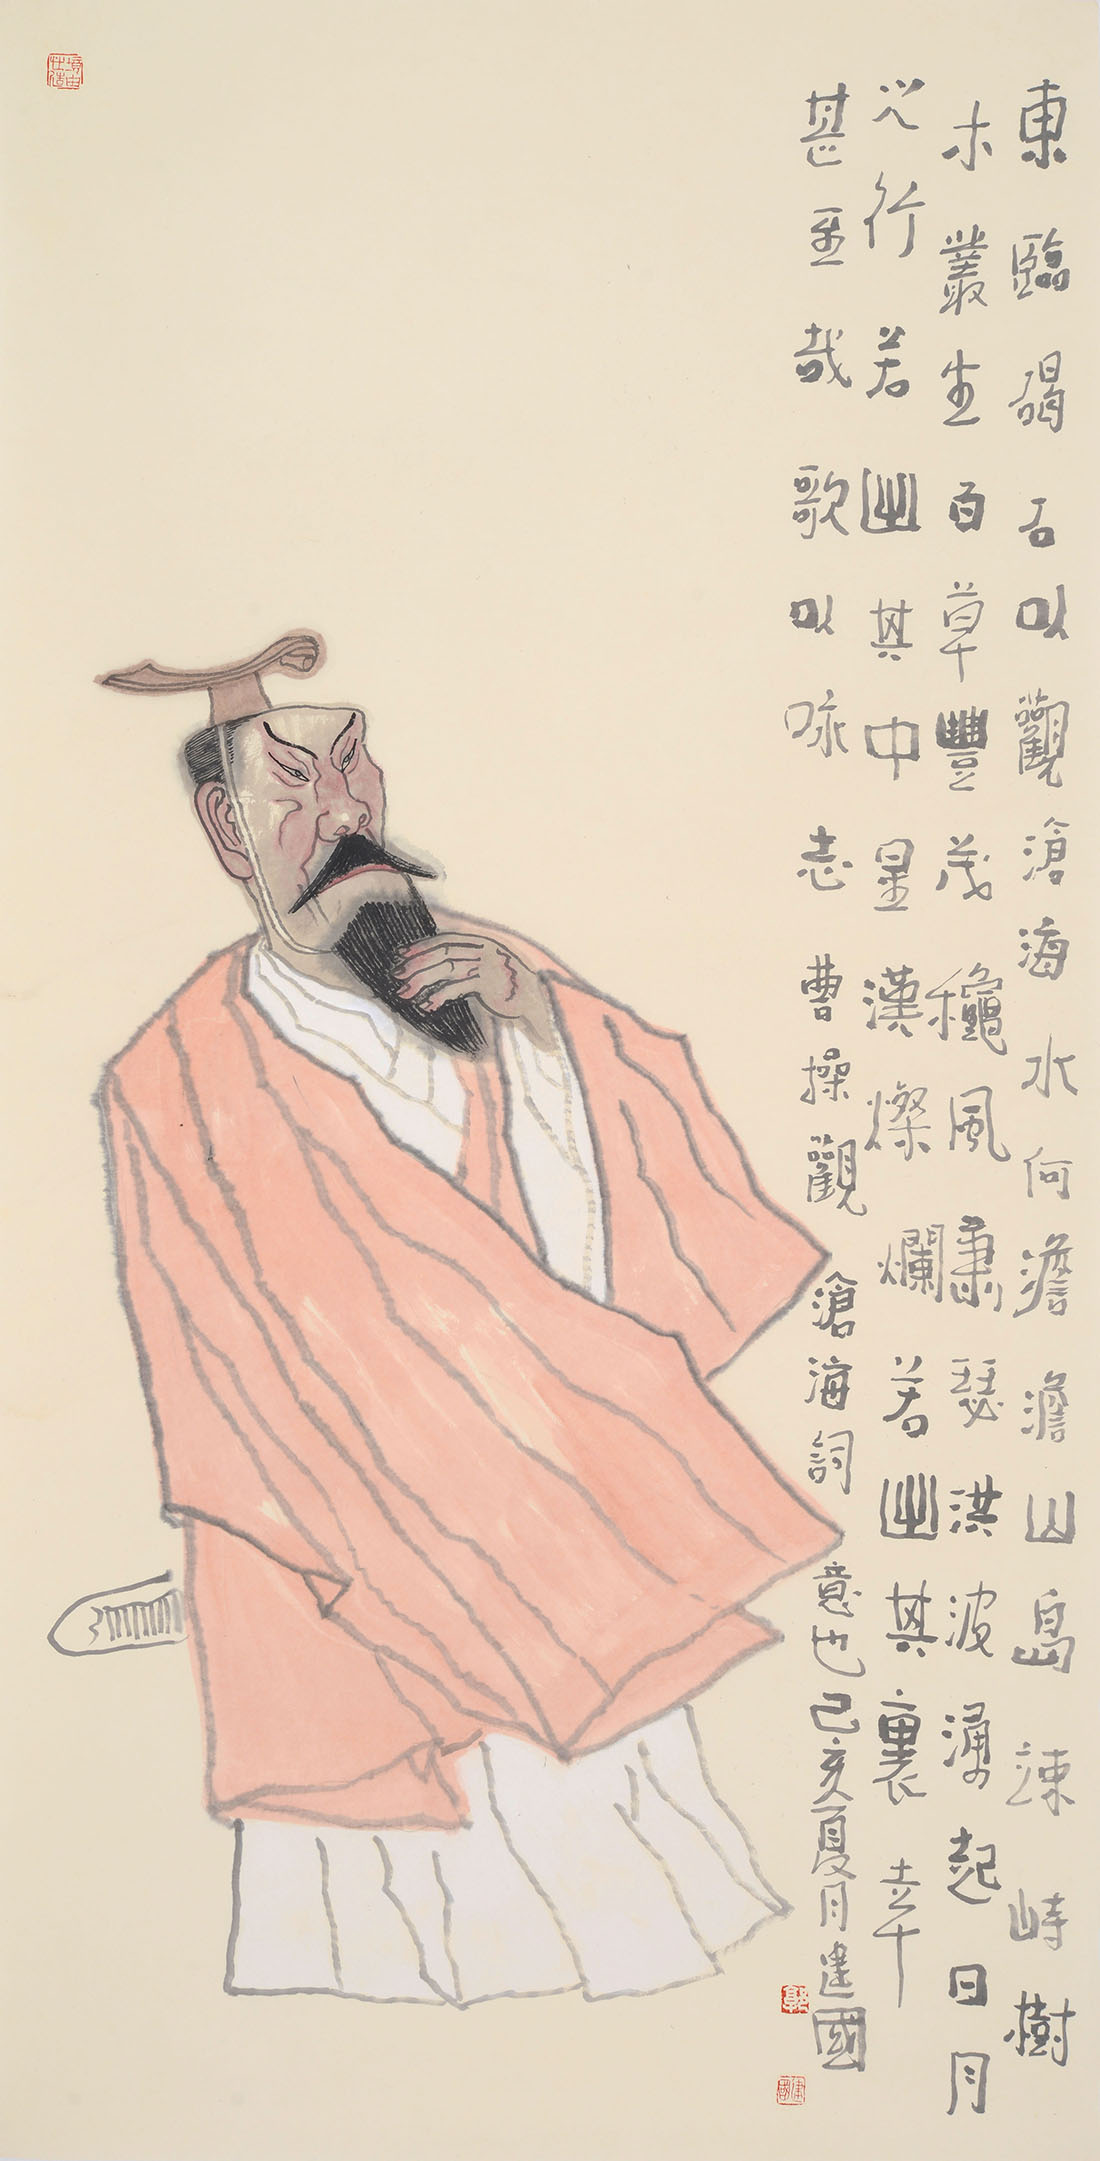 東臨碣石以觀滄海水何澹澹山島竦峙樹
木叢生百草豐茂穐風肅瑟洪波涌起日月
之行若出其中星漢燦爛若出其裏幸
甚至哉歌以咏志曹操觀滄海詞意也己亥夏月建國
郭
建國